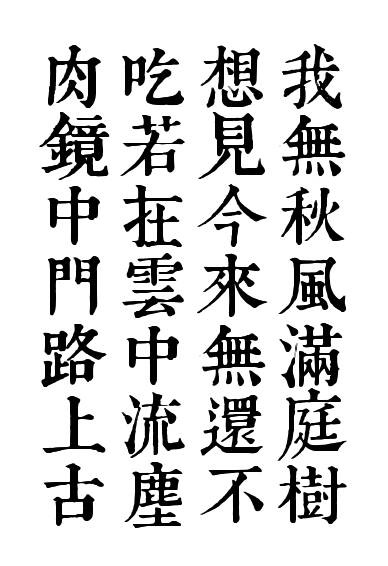 我無秋風滿庭樹
想見今來無還不
吃若在雲中流塵
肉鏡中門路上古